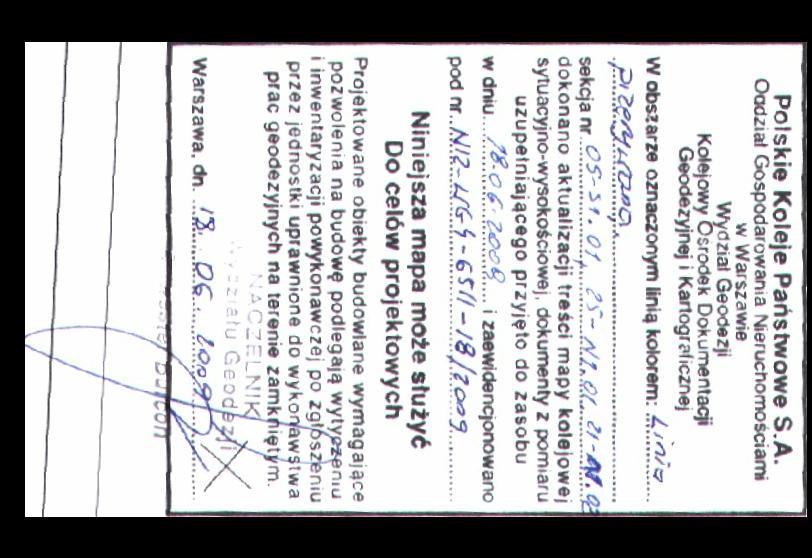 Polskie Koleje Państwowe S.A.
Oddział Gospodarowania Nieruchomościami
w Warszawie
Wydział Geodezji
Kolejowy Ośrodek Dokumentacji
Geodezyjnej i Kartograficznej
W obszarze oznaczonym linią kolorem: Linia
przerywana.
sekcja nr 05-31.01, 25-N1.01. 21-
dokonano aktualizacji treści mapy kolejowej
sytuacyjno-wysokościowej, dokumenty z pomiaru
uzupełniającego przyjęto do zasobu
w dniu 18.06.2009 i zaewidencjonowano
pod nr NI2-WG4-6511-18/2009
Niniejsza mapa może służyć
Do celów projektowych
Projektowane obiekty budowlane wymagające
pozwolenia na budowę podlegają wytyczeniu
i inwentaryzacji powykonawczej po zgłoszeniu
przez jednostki uprawnione do wykonawstwa
prac geodezyjnych na terenie zamkniętym.
NACZELNIK
Wydziału Geodezji
Warszawa, dn. 18.06.2009